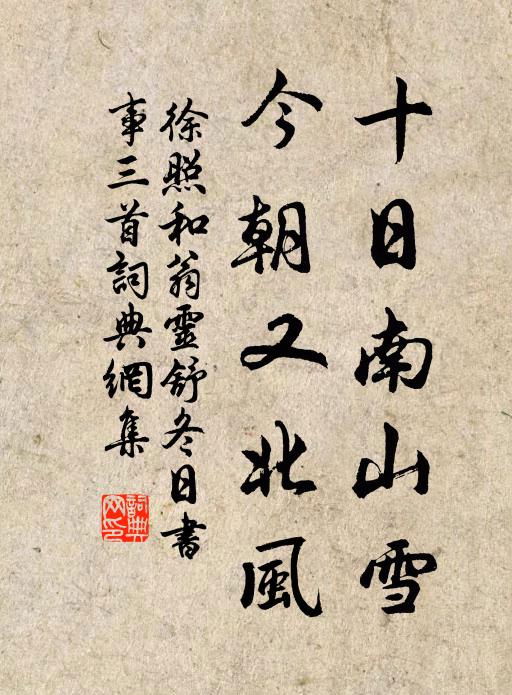 十日南山雪
今朝又北風
徐照和翁靈舒冬日書
事三首詞典網集
詞典
网印